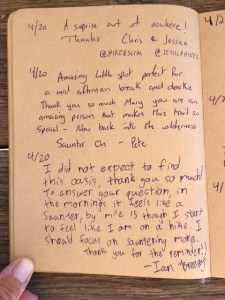 4/20 A suprise out of nowhere!
Thanks Chris & Jessica
@HIKERSLIM
4/20 Amazing little spot perfect for
a mid afternoon break and
Thank you so much Mary you are an
amazing person that makes this trail so
special - Now back into the wilderness
Saunter On - Pete
4/20
I did not expect to find
this oasis, thank you so much!
To answer your question, in
the mornings it feels like a
saunter, by mile 15 though I start
to feel like I am on a hike. I
should focus on sauntering more.
Thank you for the reminder!!
- Ian "Breezy"